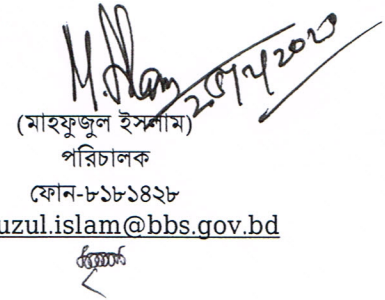 (মাহফুজুল ইসলাম)
পরিচালক
ফোন-৮১৮১৪২৮
uzul.islam@bbs.gov.bd